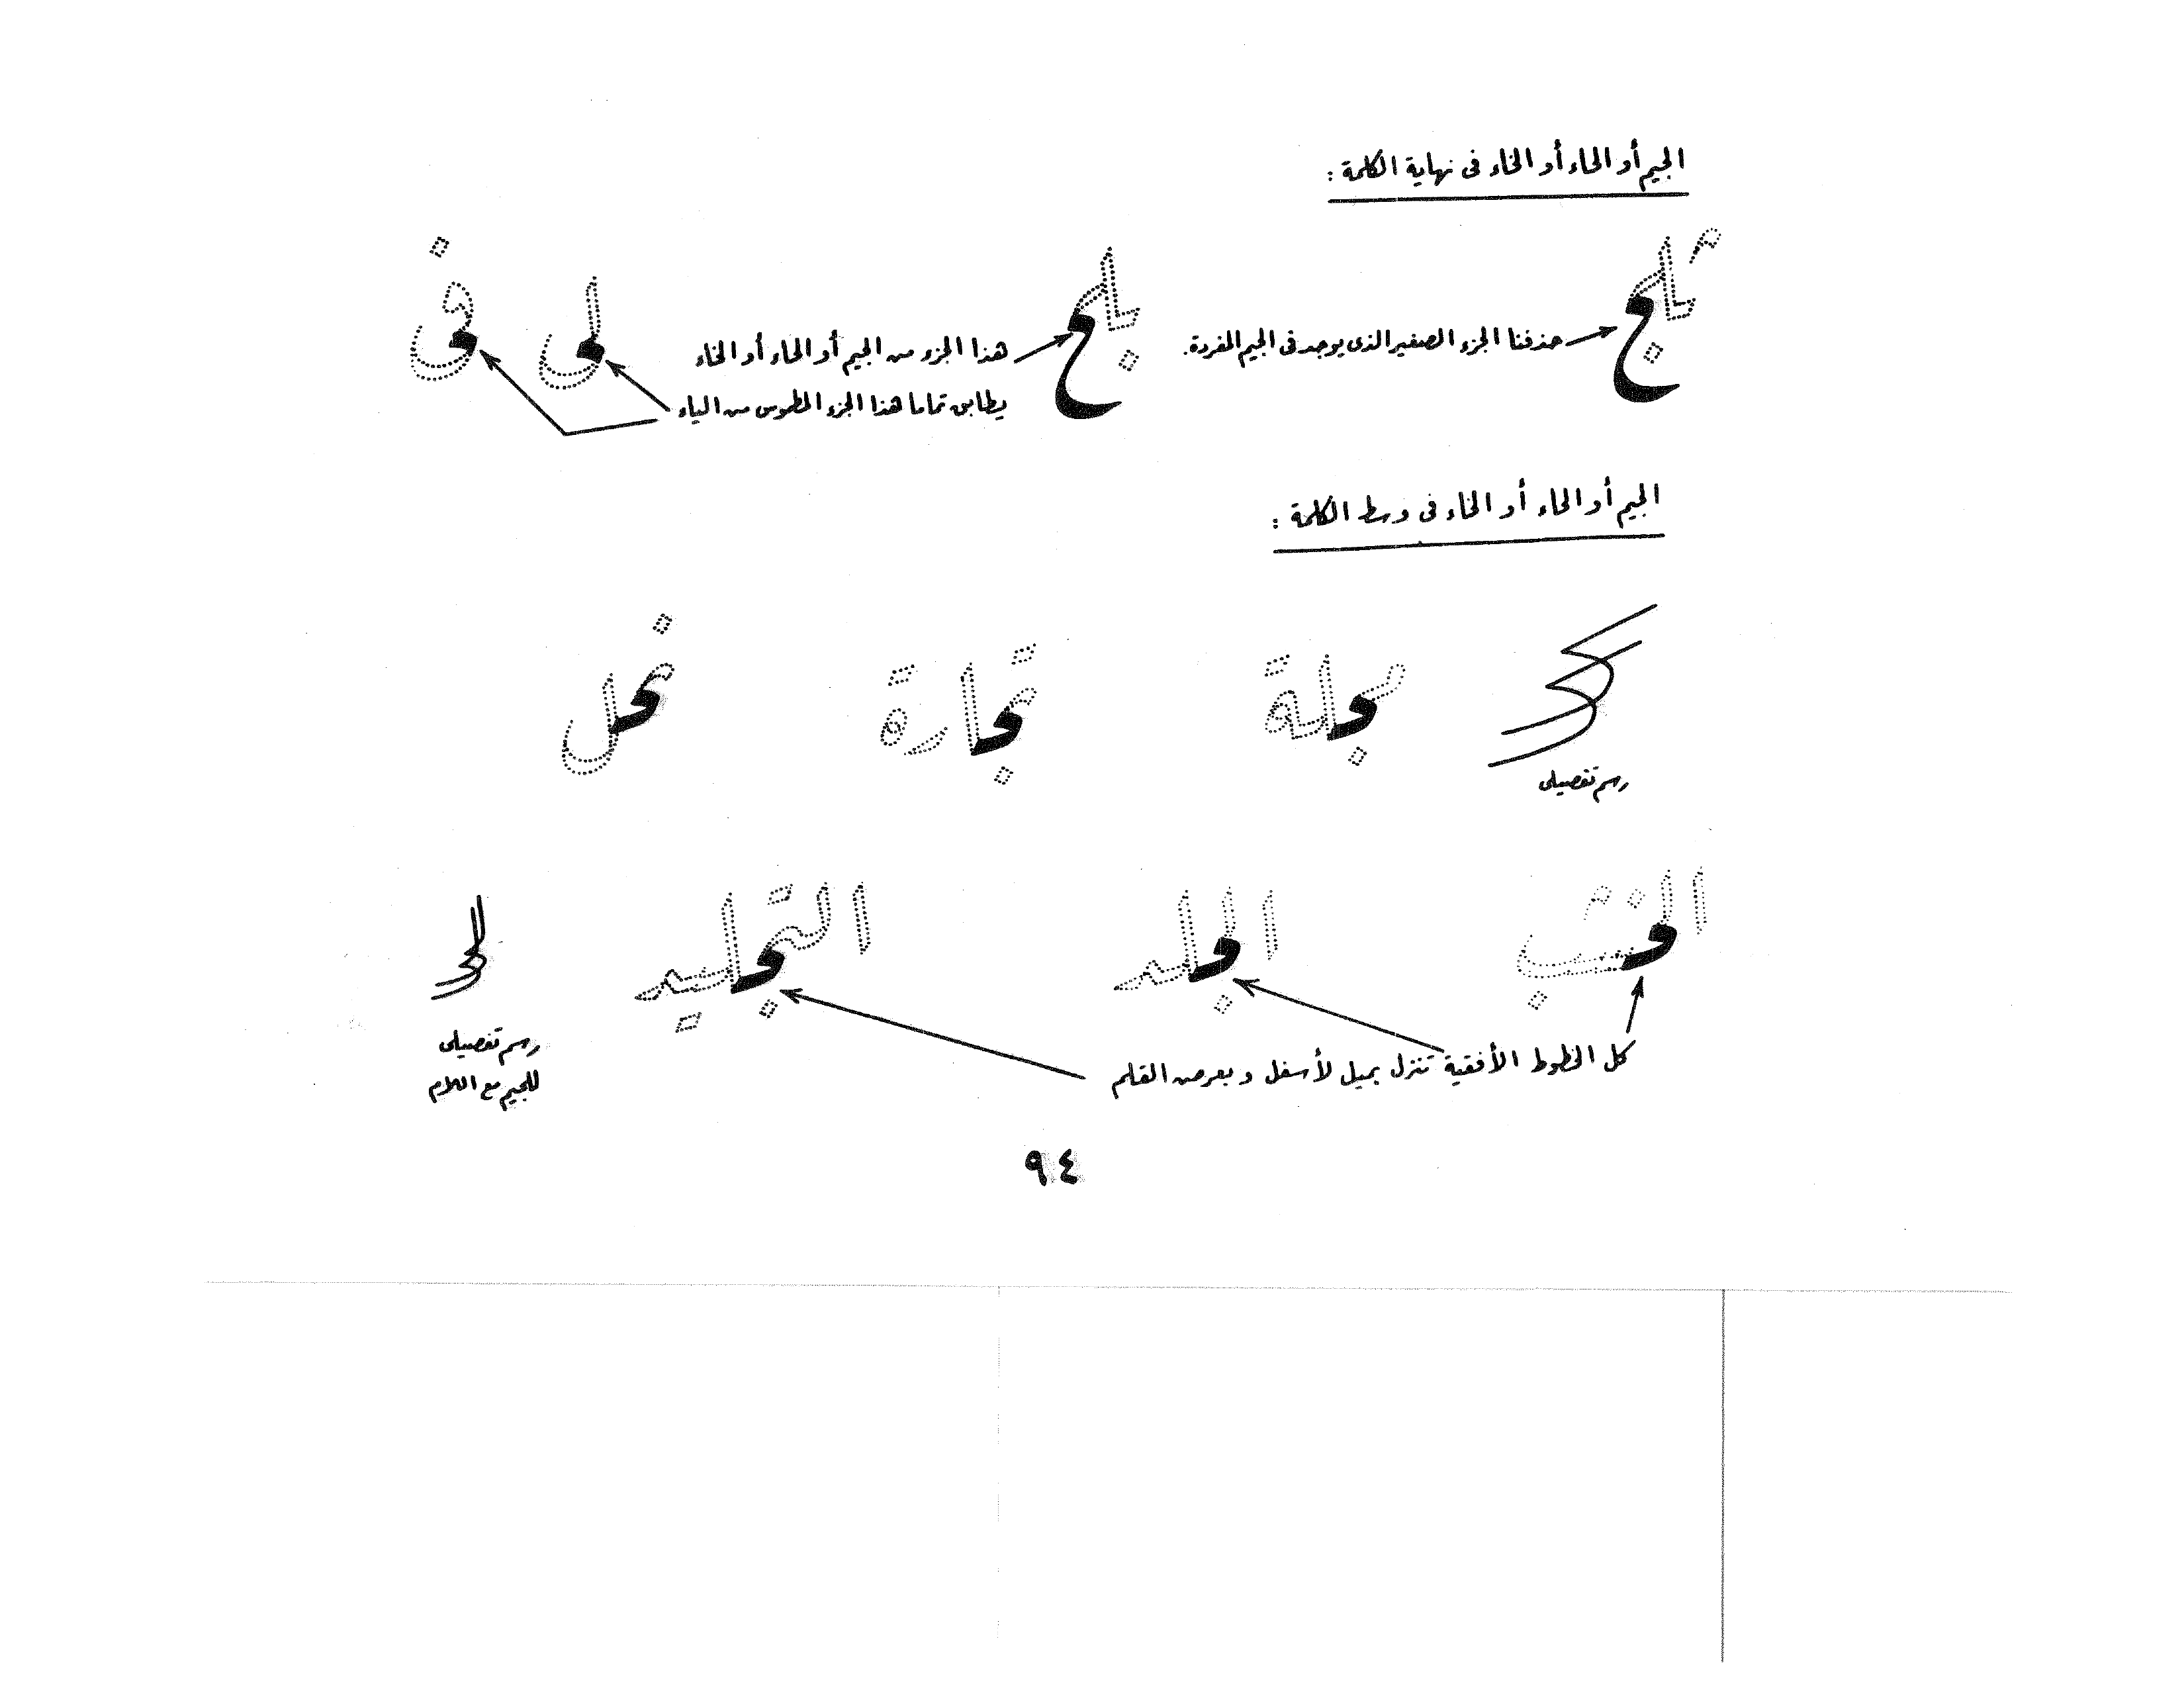 الجيم أو الحاء أو الخاء فى نهاية الكلمة :
ثلج
حذفنا الجزء الصغير الذى يوجد فى الجيم المفردة.
بلح
هذا الجزء من الجيم أو الحاء أو الخاء
يطابق تماما هذا الجزء المطموس من الياء
لى
فى
الجيم أو الحاء أو الخاء فى وسط الكلمة :
رسم تفصيلى
عجلة
تجارة
نحل
الجلد
التجليد
كل الخطوط الأفقية تنزل بميل لأسفل وبعرض القلم
رسم تفصيلى
للجيم مع اللام
٩٤